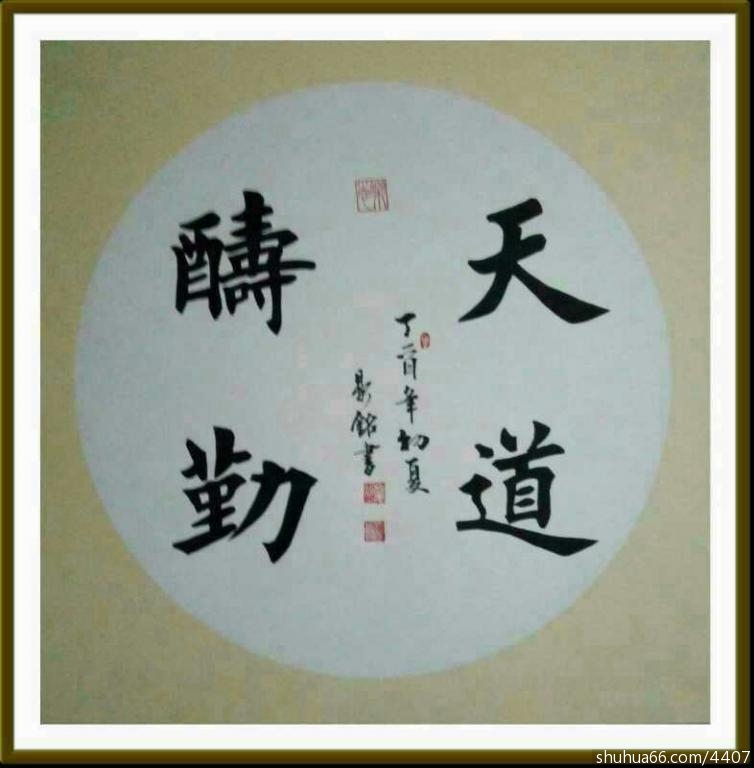 天道
醻勤
丁酉年初夏
銘書
shuhua66.com/4407